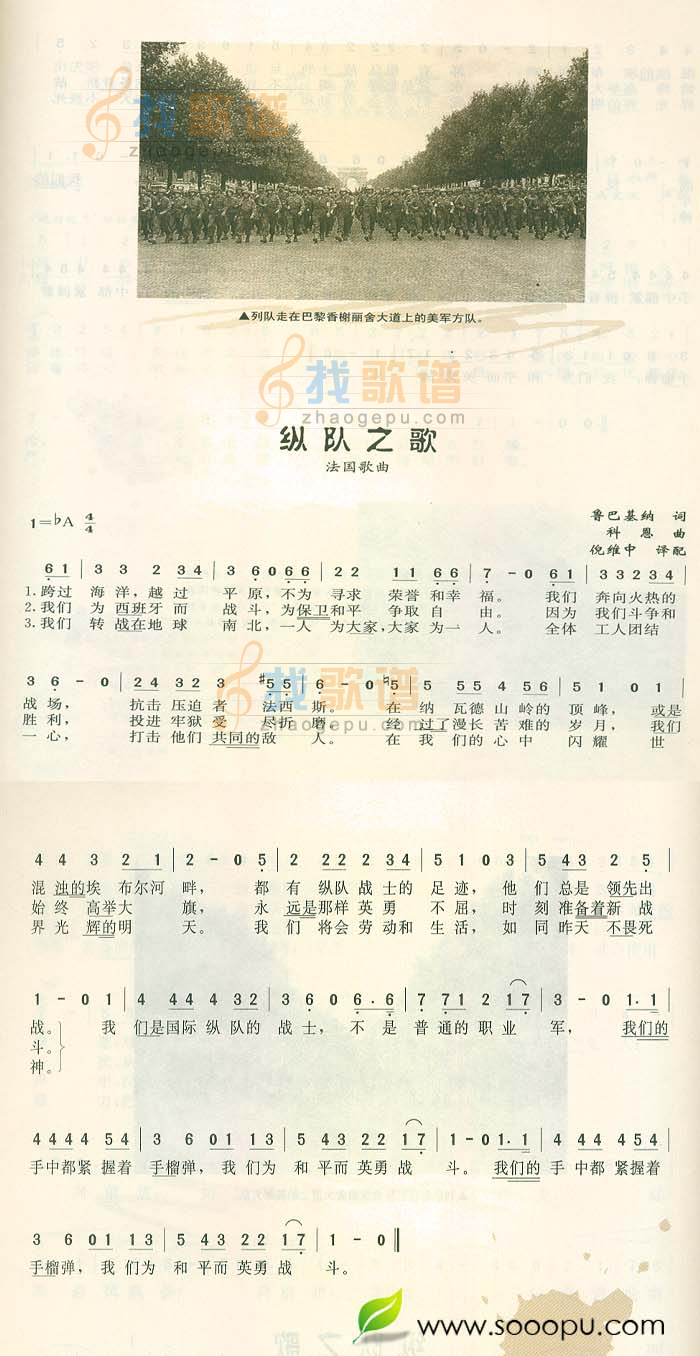 找歌谱
zhaogepu.com
▲列队走在巴黎香榭丽舍大道上的美军方队。
找歌谱
zhaogepu.com
纵队之歌
法国歌曲
1=♭A 4/4
鲁巴基纳 词
科恩 曲
倪维中 译配
6 1 | 3 3 2 3 4 | 3 6 0 6 6 | 2 2 1 1 6 6 | 7 - 0 6 1 | 3 3 2 3 4
1. 跨过 海洋，越过 平原，不为 寻求 荣誉和幸福。 我们 奔向火热的
2. 我们 为西班牙而 战斗，为保卫和平 争取自由。 因为 我们斗争和
3. 我们 转战在地球 南北，一人 为大家，大家为一人。 全体 工人团结
3 6 - 0 | 2 4 3 2 3 #5 5 | 6 - 0 ♮5 | 5 5 5 4 5 6 | 5 1 0 1
战场， 抗击压迫者 法西斯。 在 纳瓦德山岭的 顶峰，或是
胜利， 投进牢狱受 尽折磨。 经 过了漫长苦难的 岁月，我们
一心， 打击他们共同的敌人。 在 我们的心中 闪耀世
找歌谱
zhaogepu.com
4 4 3 2 1 | 2 - 0 5 | 2 2 2 2 3 4 | 5 1 0 3 | 5 4 3 2 5
混浊的埃布尔河 畔， 都 有纵队战士的 足迹，他们总是领先出
始终高举大 旗， 永 远是那样英勇 不屈，时刻准备着新战
界光辉的明 天。 我 们将会劳动和 生活，如同昨天不畏死
1 - 0 1 | 4 4 4 4 3 2 | 3 6 0 6.6 | 7 7 1 2 1 7 | 3 - 0 1.1
战。 我 们是国际纵队的 战士，不是 普通的职业 军， 我们的
斗。
神。
4 4 4 4 5 4 | 3 6 0 1 1 3 | 5 4 3 2 2 1 7 | 1 - 0 1.1 | 4 4 4 4 5 4
手中都紧握着 手榴弹，我们为 和平而英勇战 斗。我们的 手中都紧握着
3 6 0 1 1 3 | 5 4 3 2 2 1 7 | 1 - 0 ‖
手榴弹，我们为 和平而英勇战 斗。
www.sooopu.com